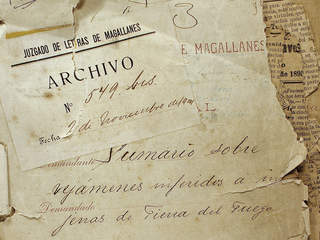 JUZGADO DE LETRAS DE MAGALLANES
ARCHIVO
N° 549 bis.
Fecha 2 de Noviembre de
3
E MAGALLANES
AL
Demandante Sumario sobre
vejámenes inferidos a in
Demandado
jenas de Tierra del Fuego
de 189